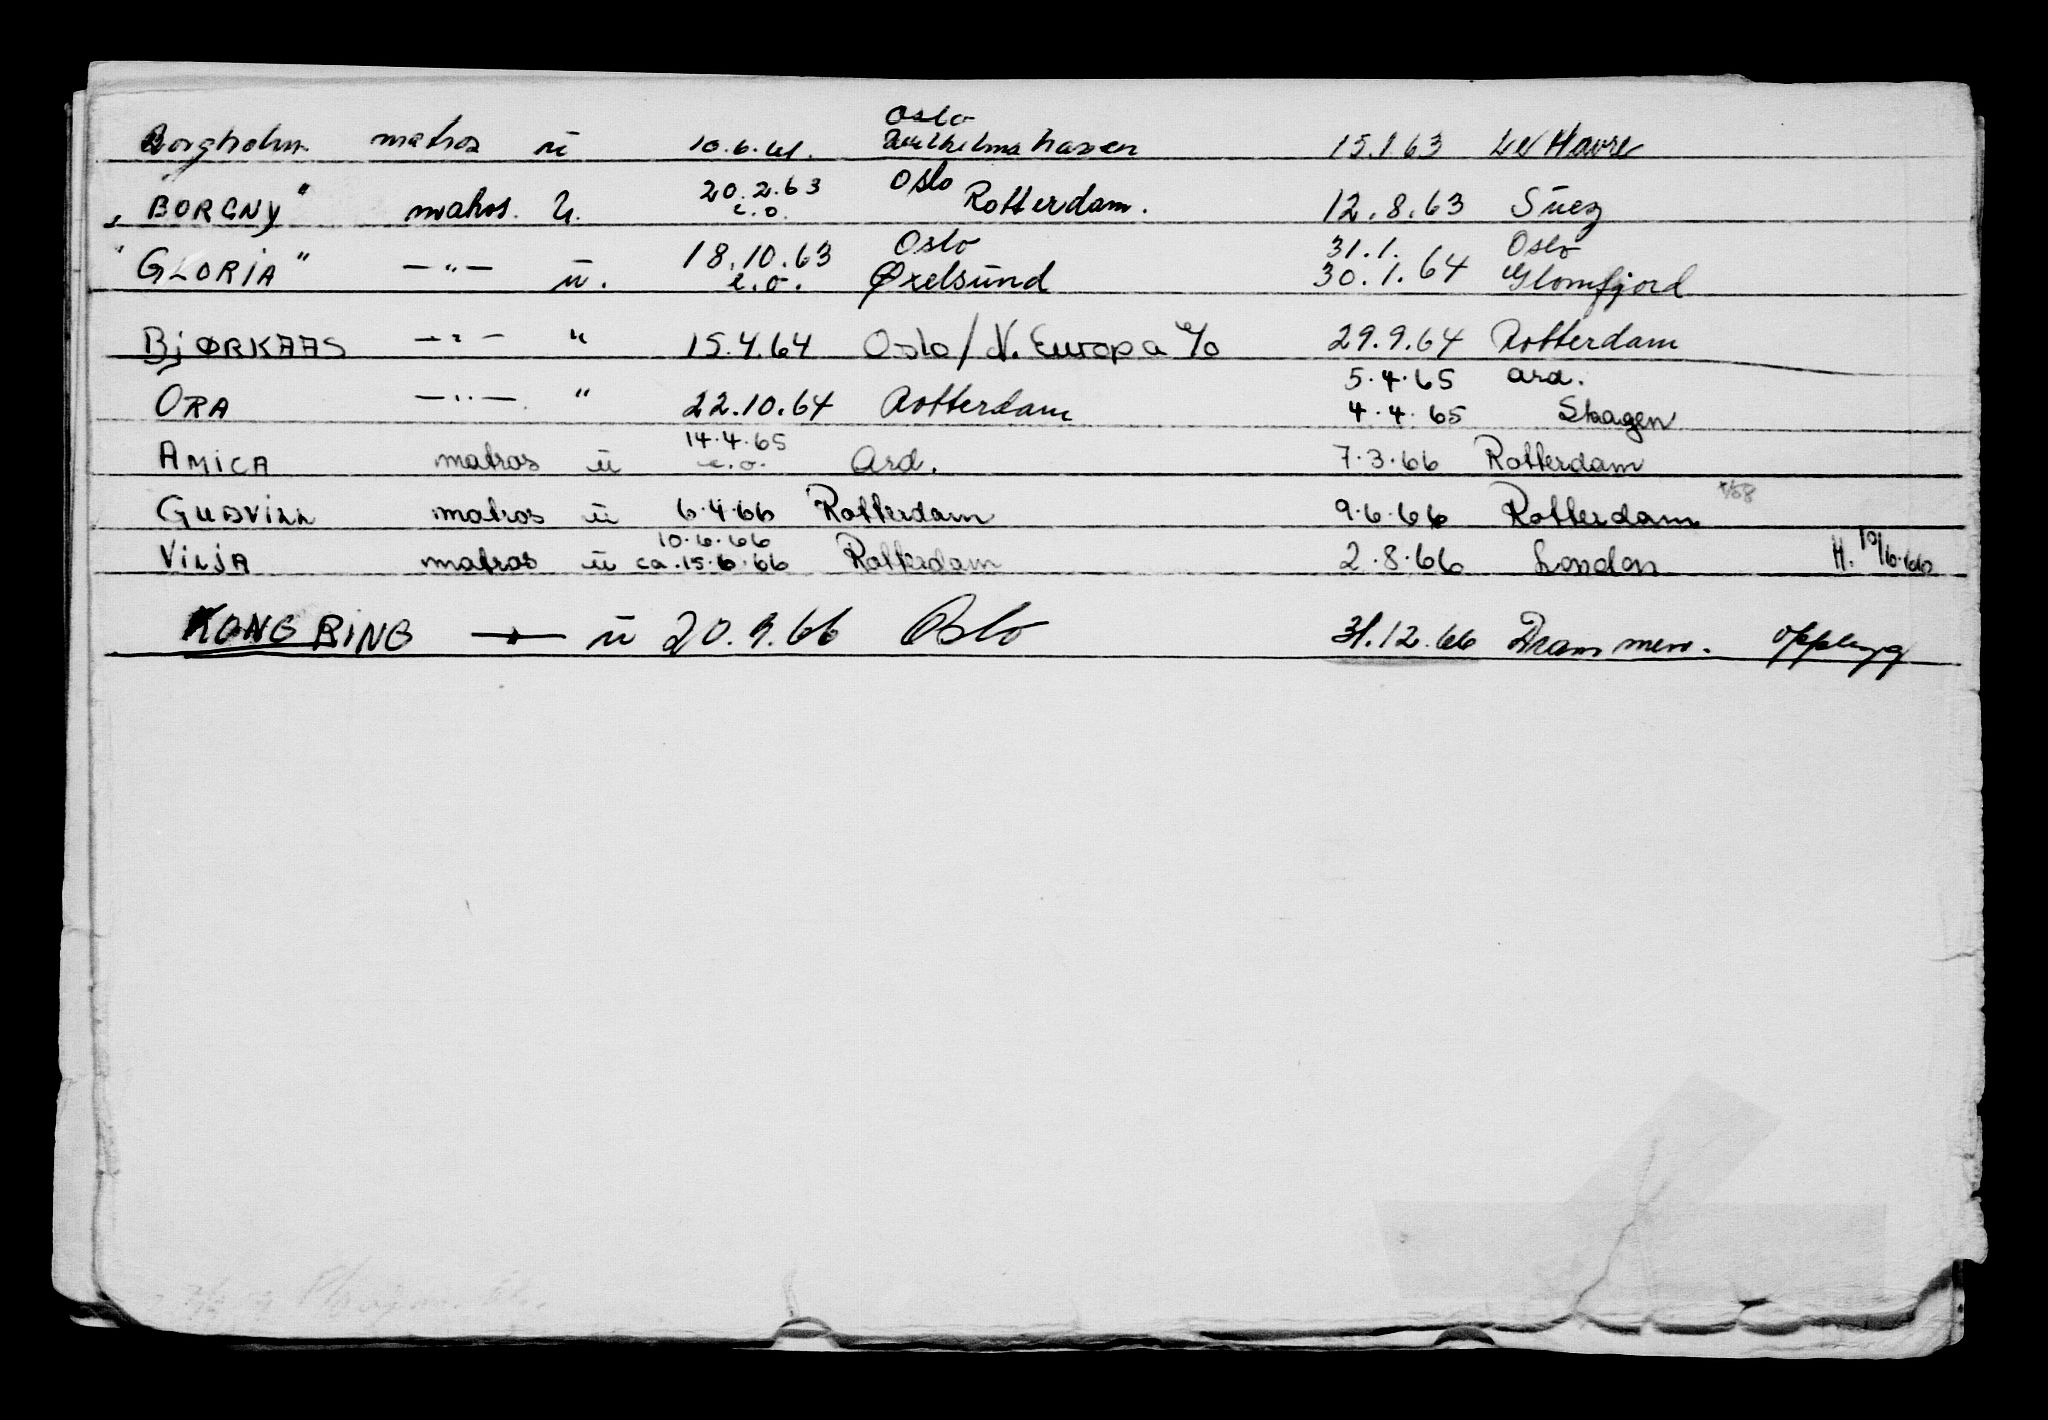 Borgholm matros u 10.6.61. Oslo Wilhelmshaven 15.1.63 Le Havre
"BORGNY" matros. U. 20.2.63 e.o. Oslo Rotterdam. 12.8.63 Suez
"GLORIA" —"— u. 18.10.63 e.o. Oslo Øxelsund 31.1. 30.1.64 Oslo Glomfjord
BjØRKAAS —"— " 15.4.64 Oslo / N. Europa e/o 29.9.64 Rotterdam
ORA —"— " 22.10.64 Rotterdam 5.4.65 4.4.65 Ard. Skagen
AMICA matros u 14.4.65 e.o. Ard. 7.3.66 Rotterdam
GUDVILL matros u 6.4.66 Rotterdam 9.6.66 Rotterdam
VILJA matros u 10.6.66 ca.15.6.66 Rotterdam 2.8.66 London H. 10/6.66
KONG RING —"— u 20.9.66 Oslo 31.12.66 Drammen. opplagg